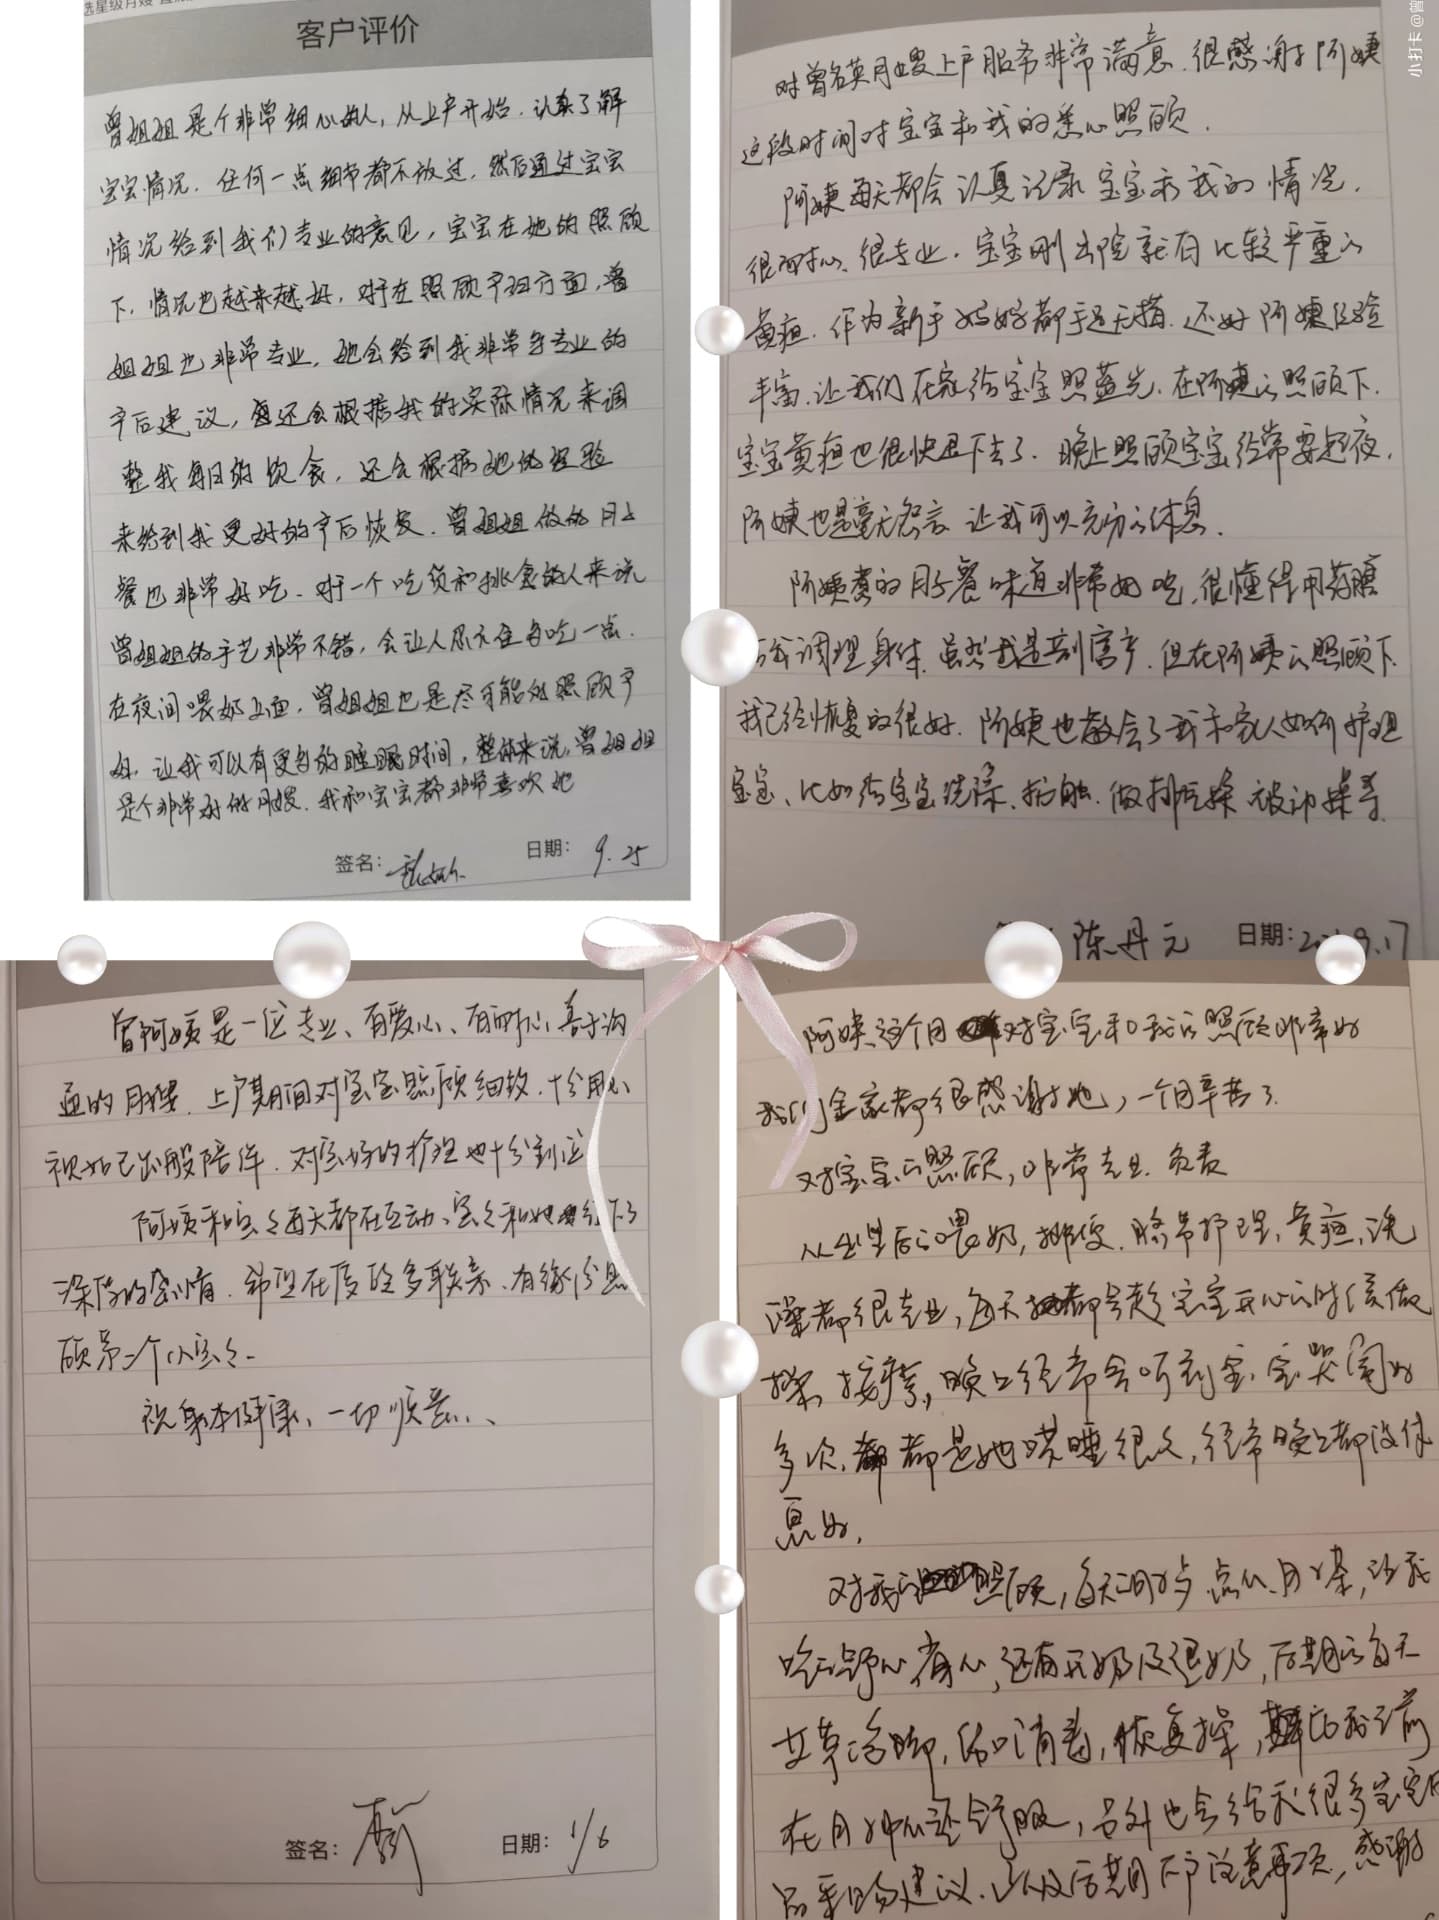 选星级月嫂
客户评价
曾姐姐是个非常细心的人，从上户开始，认真了解
宝宝情况，任何一点细节都不放过，然后通过宝宝
情况给到我们专业的意见，宝宝在她的照顾
下，情况也越来越好，对于在照顾产妇方面，曾
姐姐也非常专业，她会给到我非常专业的
产后建议，还会根据我的实际情况来调
整我每日的饮食，还会根据她的经验
来给到我更好的产后恢复，曾姐姐做的月子
餐也非常好吃，对于一个吃货和挑食的人来说
曾姐姐的手艺非常不错，会让人忍不住多吃一点，
在夜间喂奶上面，曾姐姐也是尽可能的照顾产
妇，让我可以有更多的睡眠时间，整体来说，曾姐姐
是个非常好的月嫂，我和宝宝都非常喜欢她
签名：
日期：9.25
小打卡@曾
对曾名英月嫂上户服务非常满意，很感谢阿姨
这段时间对宝宝和我的悉心照顾。
阿姨每天都会认真记录宝宝和我的情况，
很细心，很专业，宝宝刚出院就有比较严重的
黄疸，作为新手妈妈都手足无措，还好阿姨经验
丰富，让我们在家给宝宝照蓝光，在阿姨的照顾下，
宝宝黄疸也很快退下去了，晚上照顾宝宝经常要起夜，
阿姨也是毫无怨言，让我可以充分的休息。
阿姨煮的月子餐味道非常好吃，很懂得用药膳
给我调理身体，虽然我是剖宫产，但在阿姨的照顾下，
我已经恢复的很好，阿姨也教会了我和家人如何护理
宝宝，比如给宝宝洗澡、抚触、做排气操、被动操等
陈丹元 日期：9.17
曾阿姨是一位专业、有爱心、有耐心，善于沟
通的月嫂，上户期间对宝宝照顾细致，十分用心
视如己出般陪伴，对宝妈的护理也十分到位
阿姨和宝宝每天都在互动，宝宝和她结下了
深厚的感情，希望在后续多联系，有缘份照
顾第二个小宝宝。
祝身体健康、一切顺意、、
签名：
日期：1/6
阿姨这个月对宝宝和我的照顾非常好
我们全家都很感谢她，一个月辛苦了。
对宝宝的照顾，非常专业、负责
从出生后的喂奶，排便，脐带护理，黄疸，洗
澡都很专业，每天都会趁宝宝开心的时候做
操，按摩，晚上经常会听到宝宝哭闹好
多次，都是她哄睡很久，经常晚上都没休
息好，
对我的照顾，每天三餐，点心，月子茶，让我
吃的舒心省心，还有开奶及退奶，后期的每天
艾草泡脚，伤口消毒，恢复操，
在月子中心还舒服，另外也会给我很多宝宝用
品采购建议，以及后期下户注意事项，感谢